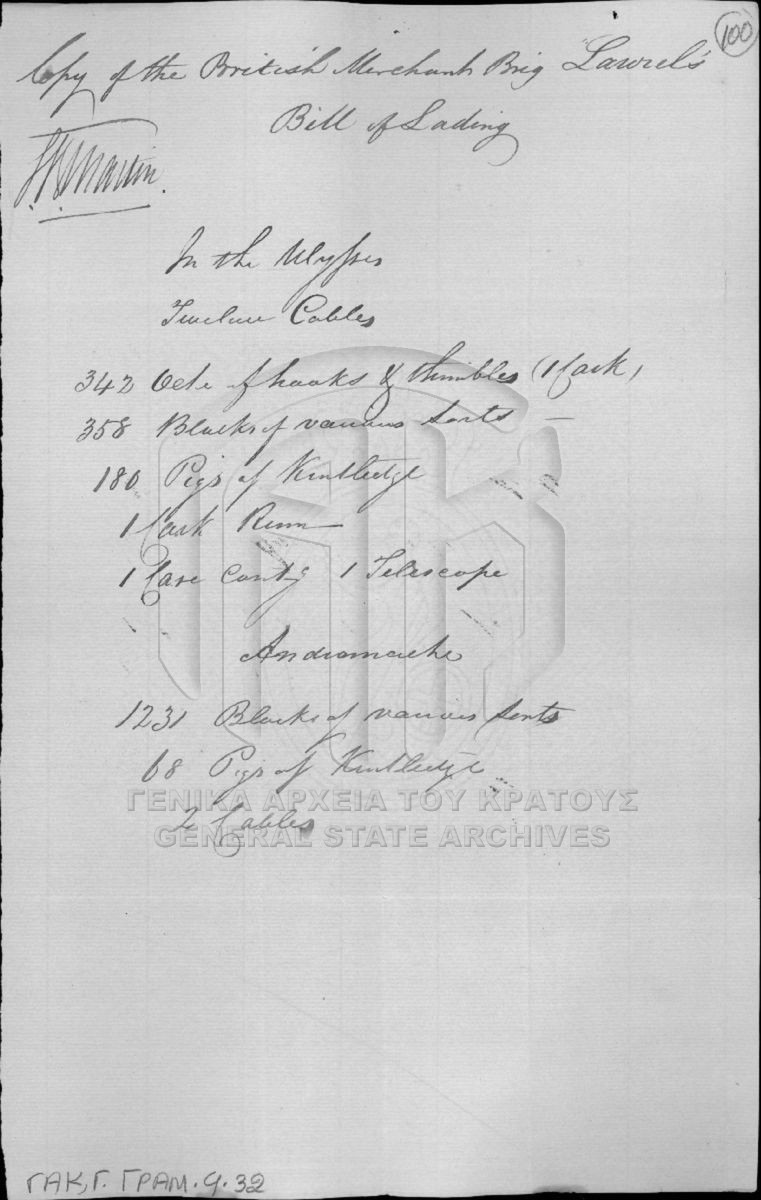 100
Copy of the British Merchant Brig "Laurel's
Bill of Lading
In the Ulysses
Twelve Cables
342 of hooks & thimbles (1 Cask)
358 Blocks of various sorts —
180 Pigs of Kentledge
1 Cask Rum —
1 Case contg 1 Telescope
Andromache
1231 Blocks of various sorts
68 Pigs of Kentledge
2 Cables
ΓΕΝΙΚΑ ΑΡΧΕΙΑ ΤΟΥ ΚΡΑΤΟΥΣ
GENERAL STATE ARCHIVES
ΓΑΚ, Γ. ΓΡΑΜ. 9. 32